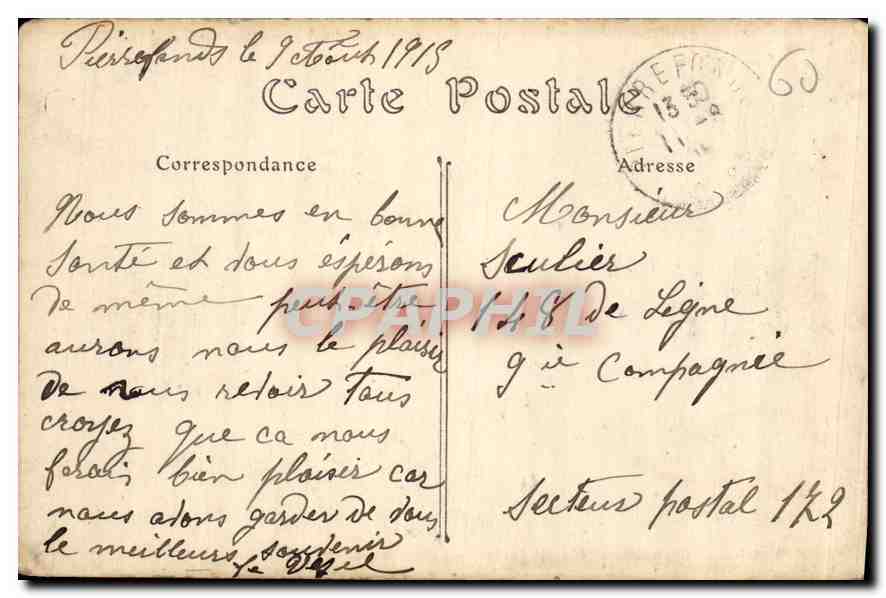 Pierrefonds le 9 Août 1915
Carte Postale
60
PIERREFONDS
13
Correspondance
Adresse
Nous sommes en bonne
Santé et vous éspérons
de même peut-être
aurons nous le plaisir
de nous revoir Tous
croyez que ca nous
ferais bien plaisir car
nous avons garder de vous
le meilleurs souvenir
Monsieur
Sculier
148 de Ligne
9ie Compagnie
Secteur postal 172
CPAPHIL